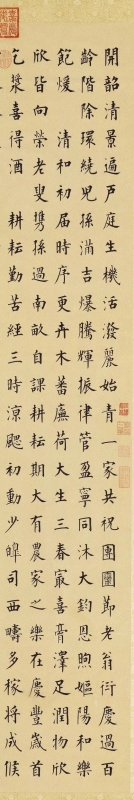 開韶清景遍戶庭生機活潑麗始青一家共祝團圞節老翁衍慶過百
齡階除環繞兒孫滿吉爆騰輝振律管盈寧同沐大鈞恩煦嫗陽和樂
飽煖 清和初屆時序更卉木蕃廡荷大生三春㝡喜膏澤足潤物欣
欣皆向榮老叟攜孫過南畝自課耕耘期大有農家之樂在慶豐歲首
乞漿喜得酒 耕耘勤苦經三時涼颸初動少皞司西疇多稼將成候